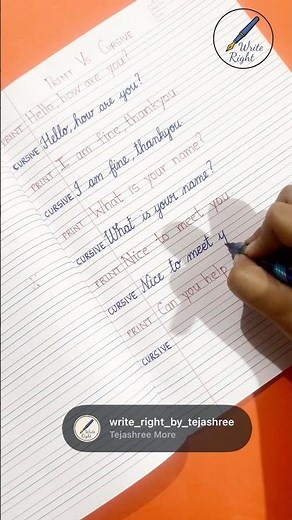 Write
Right
PRINT Vs CURSIVE
PRINT Hello, how are you?
CURSIVE Hello, how are you?
PRINT I am fine, thankyou.
CURSIVE I am fine, thankyou.
PRINT What is your name?
CURSIVE What is your name?
PRINT Nice to meet you
CURSIVE Nice to meet y
PRINT Can you help
CURSIVE
Write
Right
write_right_by_tejashree
Tejashree More